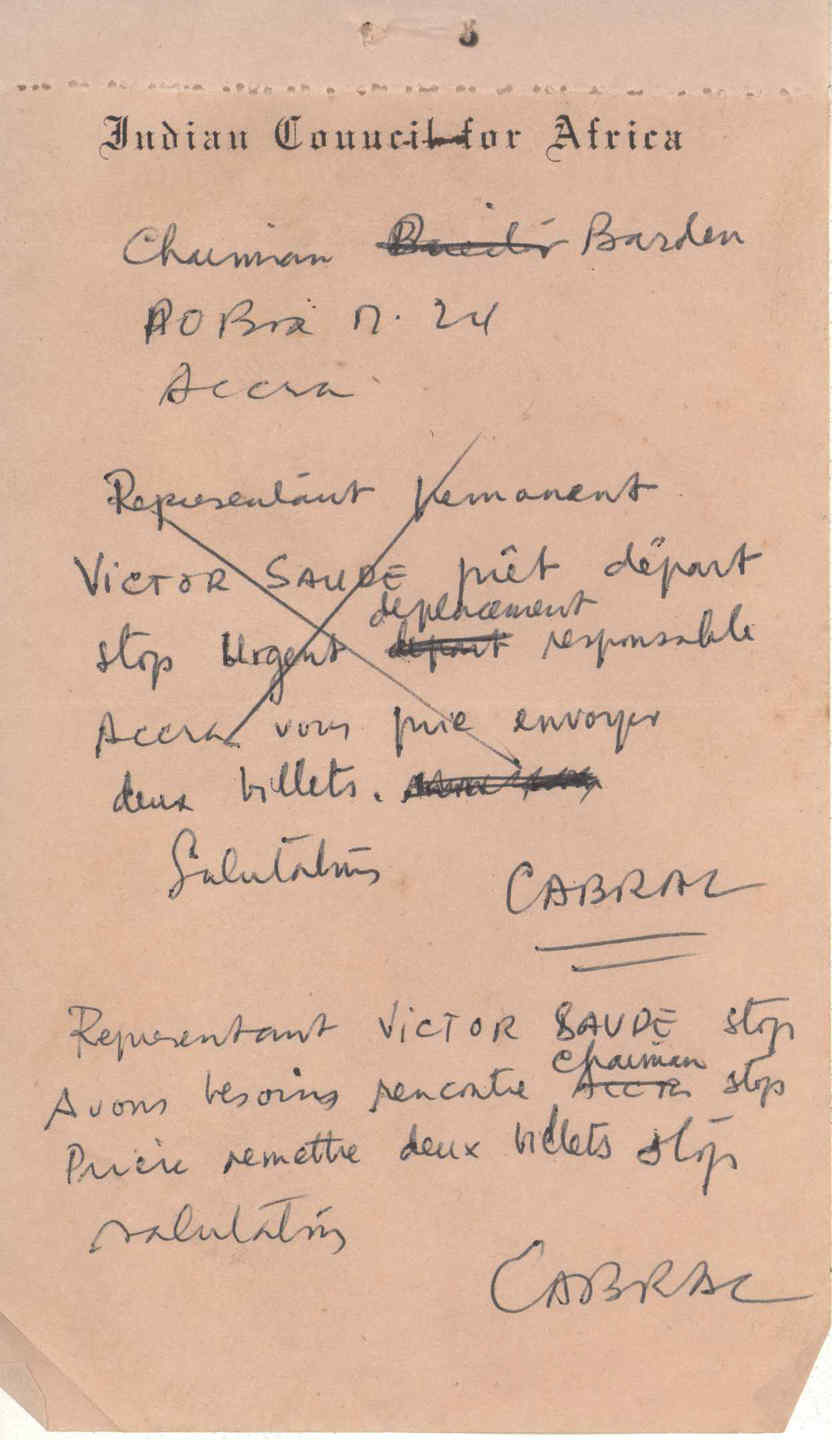 Indian Council for Africa
Chairman Barden
P O Box M. 24
Accra
Representant permanent
VICTOR SAUDE prêt départ
déplacement
stop Urgent départ responsable
Accra vous prie envoyer
deux billets.
Salutations
CABRAL
Representant VICTOR SAUDE stop
chairman
Avons besoins rencontre Accra stop
Prière remettre deux billets stop
salutations
CABRAL